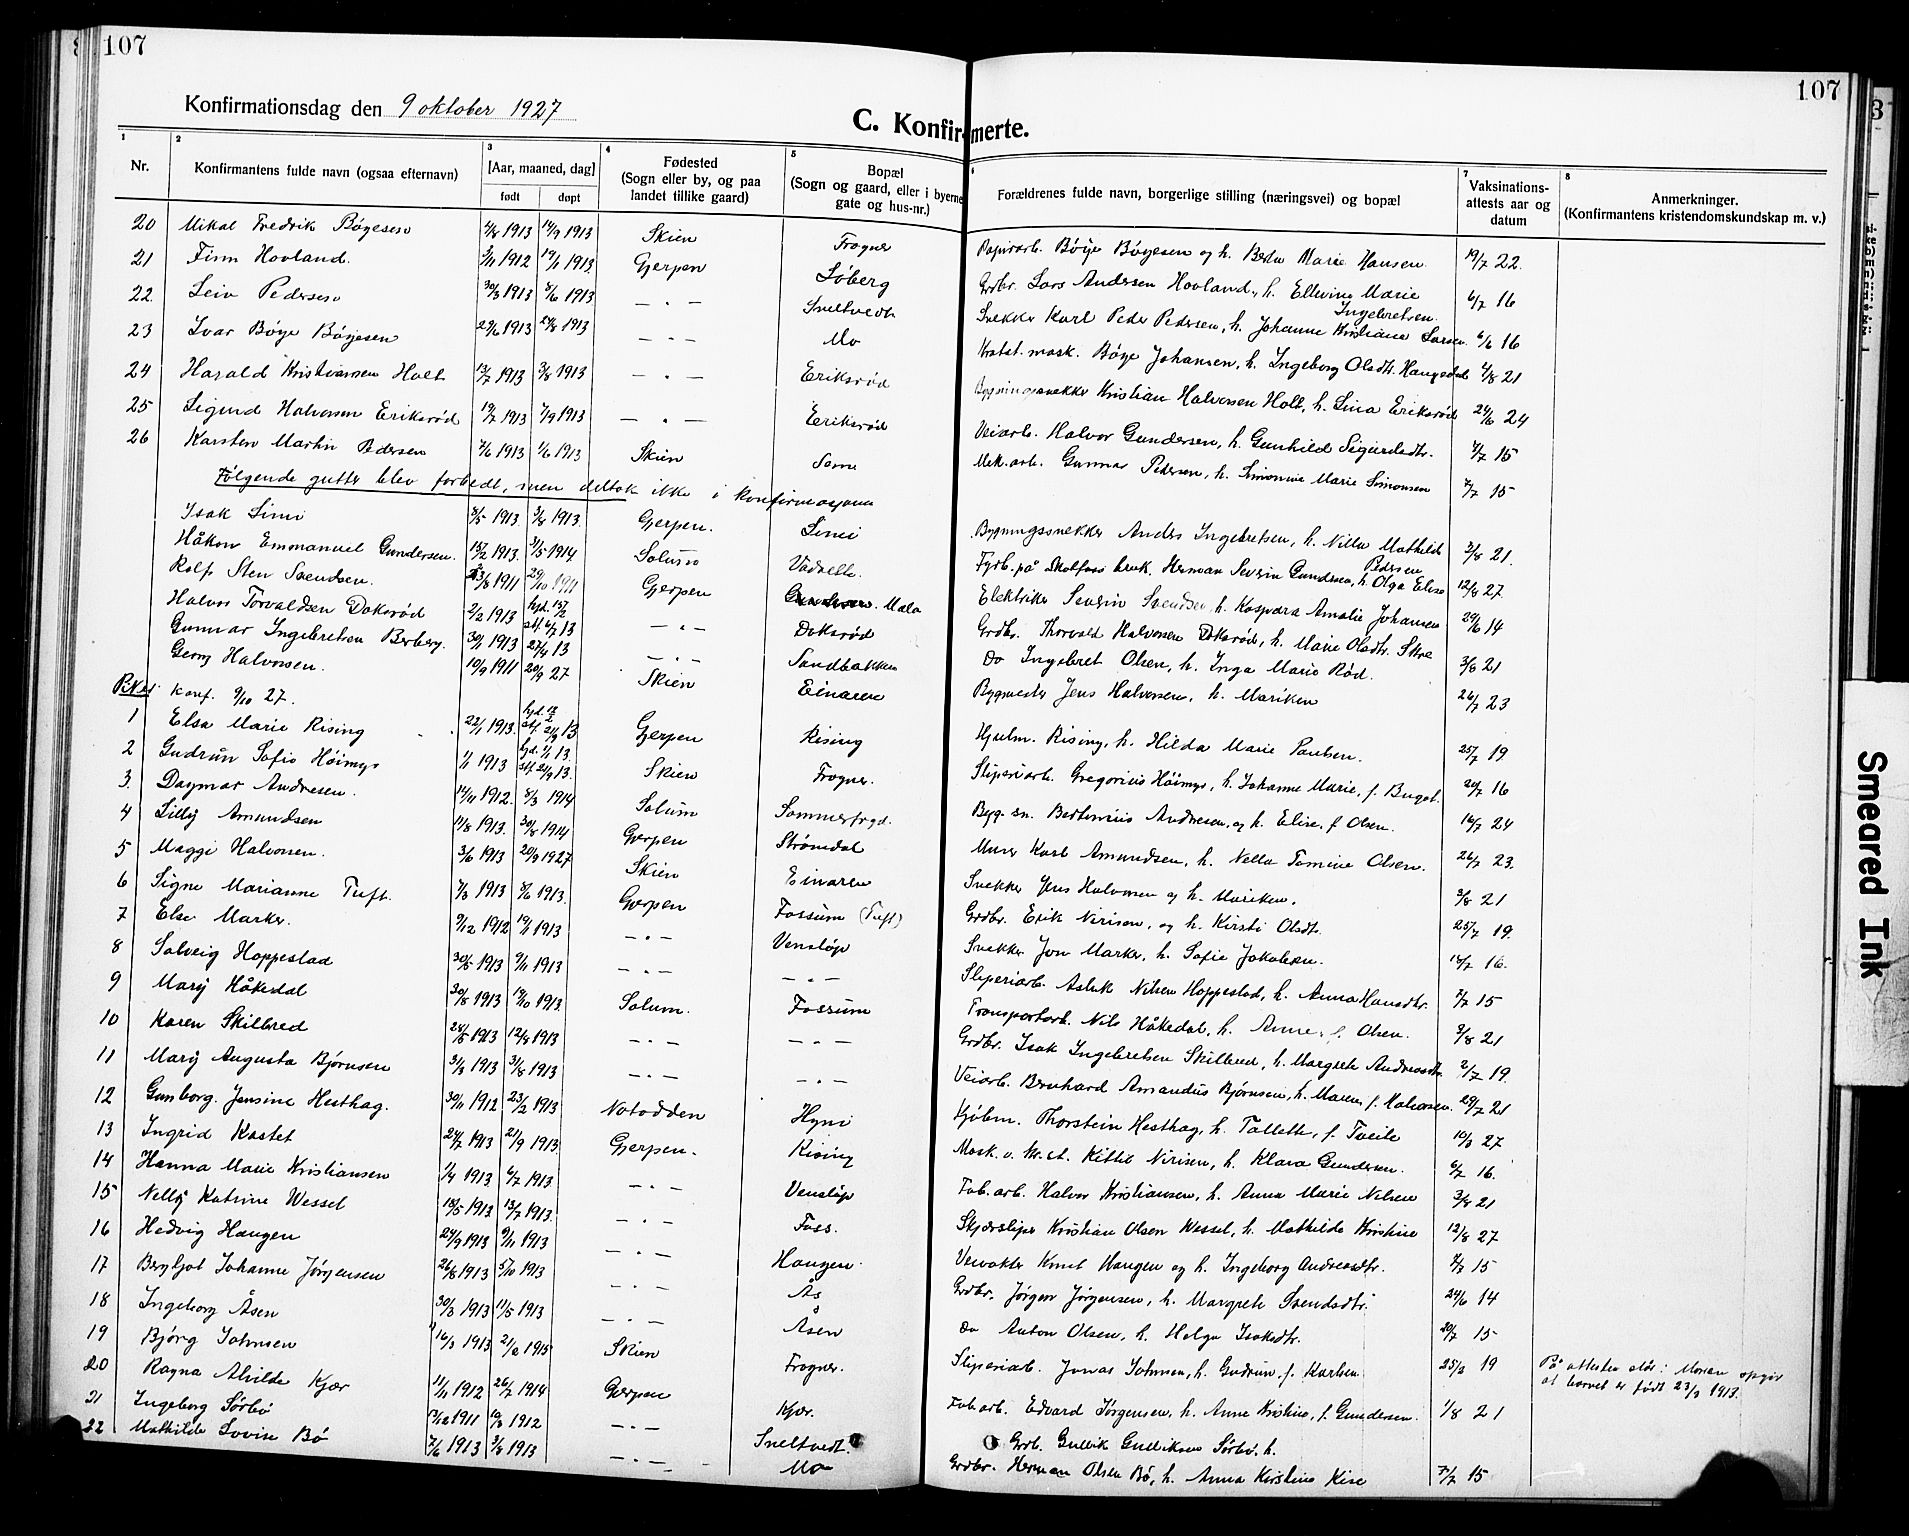 107
107
Konfirmationsdag den 9 oktober 1927
C. Konfirmerte.
1 Nr.
2 Konfirmantens fulde navn (ogsaa efternavn)
3 [Aar, maaned, dag] født døpt
4 Fødested (Sogn eller by, og paa landet tillike gaard)
5 Bopæl (Sogn og gaard, eller i byerne gate og hus-nr.)
6 Forældrenes fulde navn, borgerlige stilling (næringsvei) og bopæl
7 Vaksinations-attests aar og datum
8 Anmerkninger. (Konfirmantens kristendomskundskap m. v.)
20 Mikal Fredrik Bøgesen 1913 14/9 1913 Skien Frogner Papirarb. Børje Bøgesen og h. Berte Marie Hansen 19/7 22.
21 Finn Hovland. 1912 19/1 1913. Gjerpen Løberg Grdbr. Lars Andersen Hovland, h. Ellevine Marie Ingebretsen. 6/7 16
22 Leiv Pedersen 30/3 1913 8/6 1913 — „ — Sneltvedt Snekker Karl Peder Pedersen, h. Johanne Kristiane Larsen. 6/6 16
23 Ivar Børje Bøgesen 29/6 1913 24/8 1913 — „ — Mo Kraftst. mask. Børje Johansen, h. Ingeborg Olsdtr. Haugedal 4/8 21
24 Harald Kristiansen Holt 13/7 1913 3/8 1913 — „ — Eriksrød Bygningssnekker Kristian Halvorsen Holt, h. Lina Eriksrød 24/6 24
25 Sigurd Halvorsen Eriksrød 19/7 1913 7/9 1913 — „ — Eriksrød Veiarb. Halvor Gundersen, h. Gunhild Sigurdsdtr. 7/7 15
26 Karsten Martin Pedersen 7/6 1913 1/6 1913 Skien Seme Mek. arb. Gunnar Pedersen, h. Simonine Marie Simonsen 7/7 15
Følgende gutter blev forbedt, men deltok ikke i konfirmasjonen
Isak Limi 8/5 1913. 3/8 1913. Gjerpen. Limi Bygningssnekker Anders Ingebretsen, h. Nilla Mathilde Pedersen 3/8 21.
Håkon Emmanuel Gundersen. 15/2 1913. 31/5 1914. Solum Vadrette Fyrb. på Skotfoss bruk. Herman Severin Gundersen, h. Olga Elise 12/8 27.
Rolf Sten Svendsen. 23/8 1911 29/10 1911 Gjerpen Mæla Elektriker Severin Svendsen, h. Kaspara Amalie Johansen 29/6 14
Halvor Torvaldsen Doksrød 2/2 1913 hjd. 15/2 stf. 6/7 13 — „ — Doksrød Grdbr. Thorvald Halvorsen Doksrød, h. Marie Olsdtr. Skree 3/8 21
Gunnar Ingebretsen Berberg. 30/1 1913 27/4 13 — „ — Sandbakken Do Ingebret Olsen, h. Inga Marie Rød.
Georg Halvorsen. 10/9 1911 20/9 27 Skien Einaren Bygmester Jens Halvorsen, h. Mariken 26/7 23
Piker konf. 9/10 27.
1 Elsa Marie Rising 22/1 1913. hjd. stf. 21/9 13 Gjerpen Rising Hjulm. Rising, h. Hilda Marie Paulsen. 25/7 19
2 Gudrun Sofie Høimyr 1/1 1913 hjd. 1/1 13. stf. 21/9 13. Skien Frogner. Sliperiarb. Gregorius Høimyr, h. Johanne Marie, f. Bugot. 20/7 16
3. Dagmar Andresen. 14/11 1912. 8/3 1914 Solum Sommerfryd. Bygsn. Bertinius Andresen, og h. Elise, f Olsen. 14/7 24
4 Lilly Amundsen 11/8 1913. 30/8 1914 Gjerpen Strømdal Murer Karl Amundsen, h. Nella Tomine Olsen. 26/7 23.
5 Maggi Halvorsen. 3/6 1913 20/9 1927 Skien Einaren Snekker Jens Halvorsen og h. Mariken. 3/8 21
6 Signe Marianne Tuft. 7/3 1913 8/6 1913. Gjerpen Fossum (Tuft) Grdbr. Erik Nirisen, og h. Kirsti Olsdtr. 25/7 19.
7 Else Marker. 9/12 1912 19/1 1913 — „ — Venstøp Snekker Jon Marker, h. Sofie Jakobsen. 14/7 16.
8 Solveig Hoppestad 30/5 1913 9/11 1913 — „ — — „ — Sliperiarb. Aslak Nilsen Hoppestad, h. Anna Hansdtr. 7/7 15
9 Mary Håkedal 30/8 1913 19/10 1913. Solum. Fossum Transportarb. Nils Håkedal, h. Anne, f. Olsen. 3/8 21
10 Karen Skilbred 24/5 1913 12/4 1913 — „ — — „ — Grdbr. Isak Ingebretsen Skilbred, h. Margrete Andreasdtr. 2/7 19.
11 Mary Augusta Bjørnsen 3/3 1913 31/8 1913 — „ — — „ — Veiarb. Bernhard Amandus Bjørnsen, h. Maren, f. Halvorsen. 29/7 21
12 Gunborg. Jensine Hesthag. 30/11 1912 23/2 1913 Notodden Hyni Kjølm. Thorstein Hesthag, h. Tallette, f. Tveite 10/8 27
13 Ingrid Kastet 24/7 1913 21/9 1913. Gjerpen. Rising Mask. v. Kr.st. Kittil Nirisen, h. Klara Gundersen. 6/7 16.
14 Hanna Marie Kristiansen 1/4 1913 6/7 1913. — „ — Venstøp Fab. arb. Halvor Kristiansen, h. Anna Marie Nilsen 3/8 21
15 Nelly Katrine Wessel 15/5 1913 13/7 1913. — „ — Foss. Skjærsliper Kristian Olsen Wessel, h. Mathilde Kristine 12/8 27
16 Hedvig Haugen 24/9 1913 9/11 1913 — „ — Haugen. Veivokter Knut Haugen og h. Ingeborg Andreasdtr. 7/7 15
17 Bergljot Johanne Jørgensen 26/8 1913 5/10 1913 — „ — Ås Grdbr. Jørgen Jørgensen, h. Margrete Svendsdtr. 24/6 14
18 Ingeborg Åsen 30/3 1913 11/5 1913 — „ — Åsen Do Anton Olsen, h. Helga Isaksdtr. 20/7 15
19 Bjørg Johnsen 16/3 1913 1915 Skien Frogner. Sliperiarb. Jonas Johnsen, h. Gudrun, f. Karlsen 25/2 19 På attesten står: Moren opgir at barnet er født 23/3 1913.
20 Ragna Alvilde Kjær 11/11 1912 26/7 1914 Gjerpen Kjær. Fab. arb. Edvard Jørgensen, h. Anne Kristine, f. Gundersen. 1/8 21
21 Ingeborg Sørbø 17/12 1911 10/3 1912 — „ — Sneltvedt. Grb. Gullik Gulliksen Sørbø, h.
22 Mathilde Lovise Bø 7/6 1913 3/8 1913 — „ — Mo Grdbr. Herman Olsen Bø, h. Anna Kirstine Kise 7/7 15
Smeared Ink